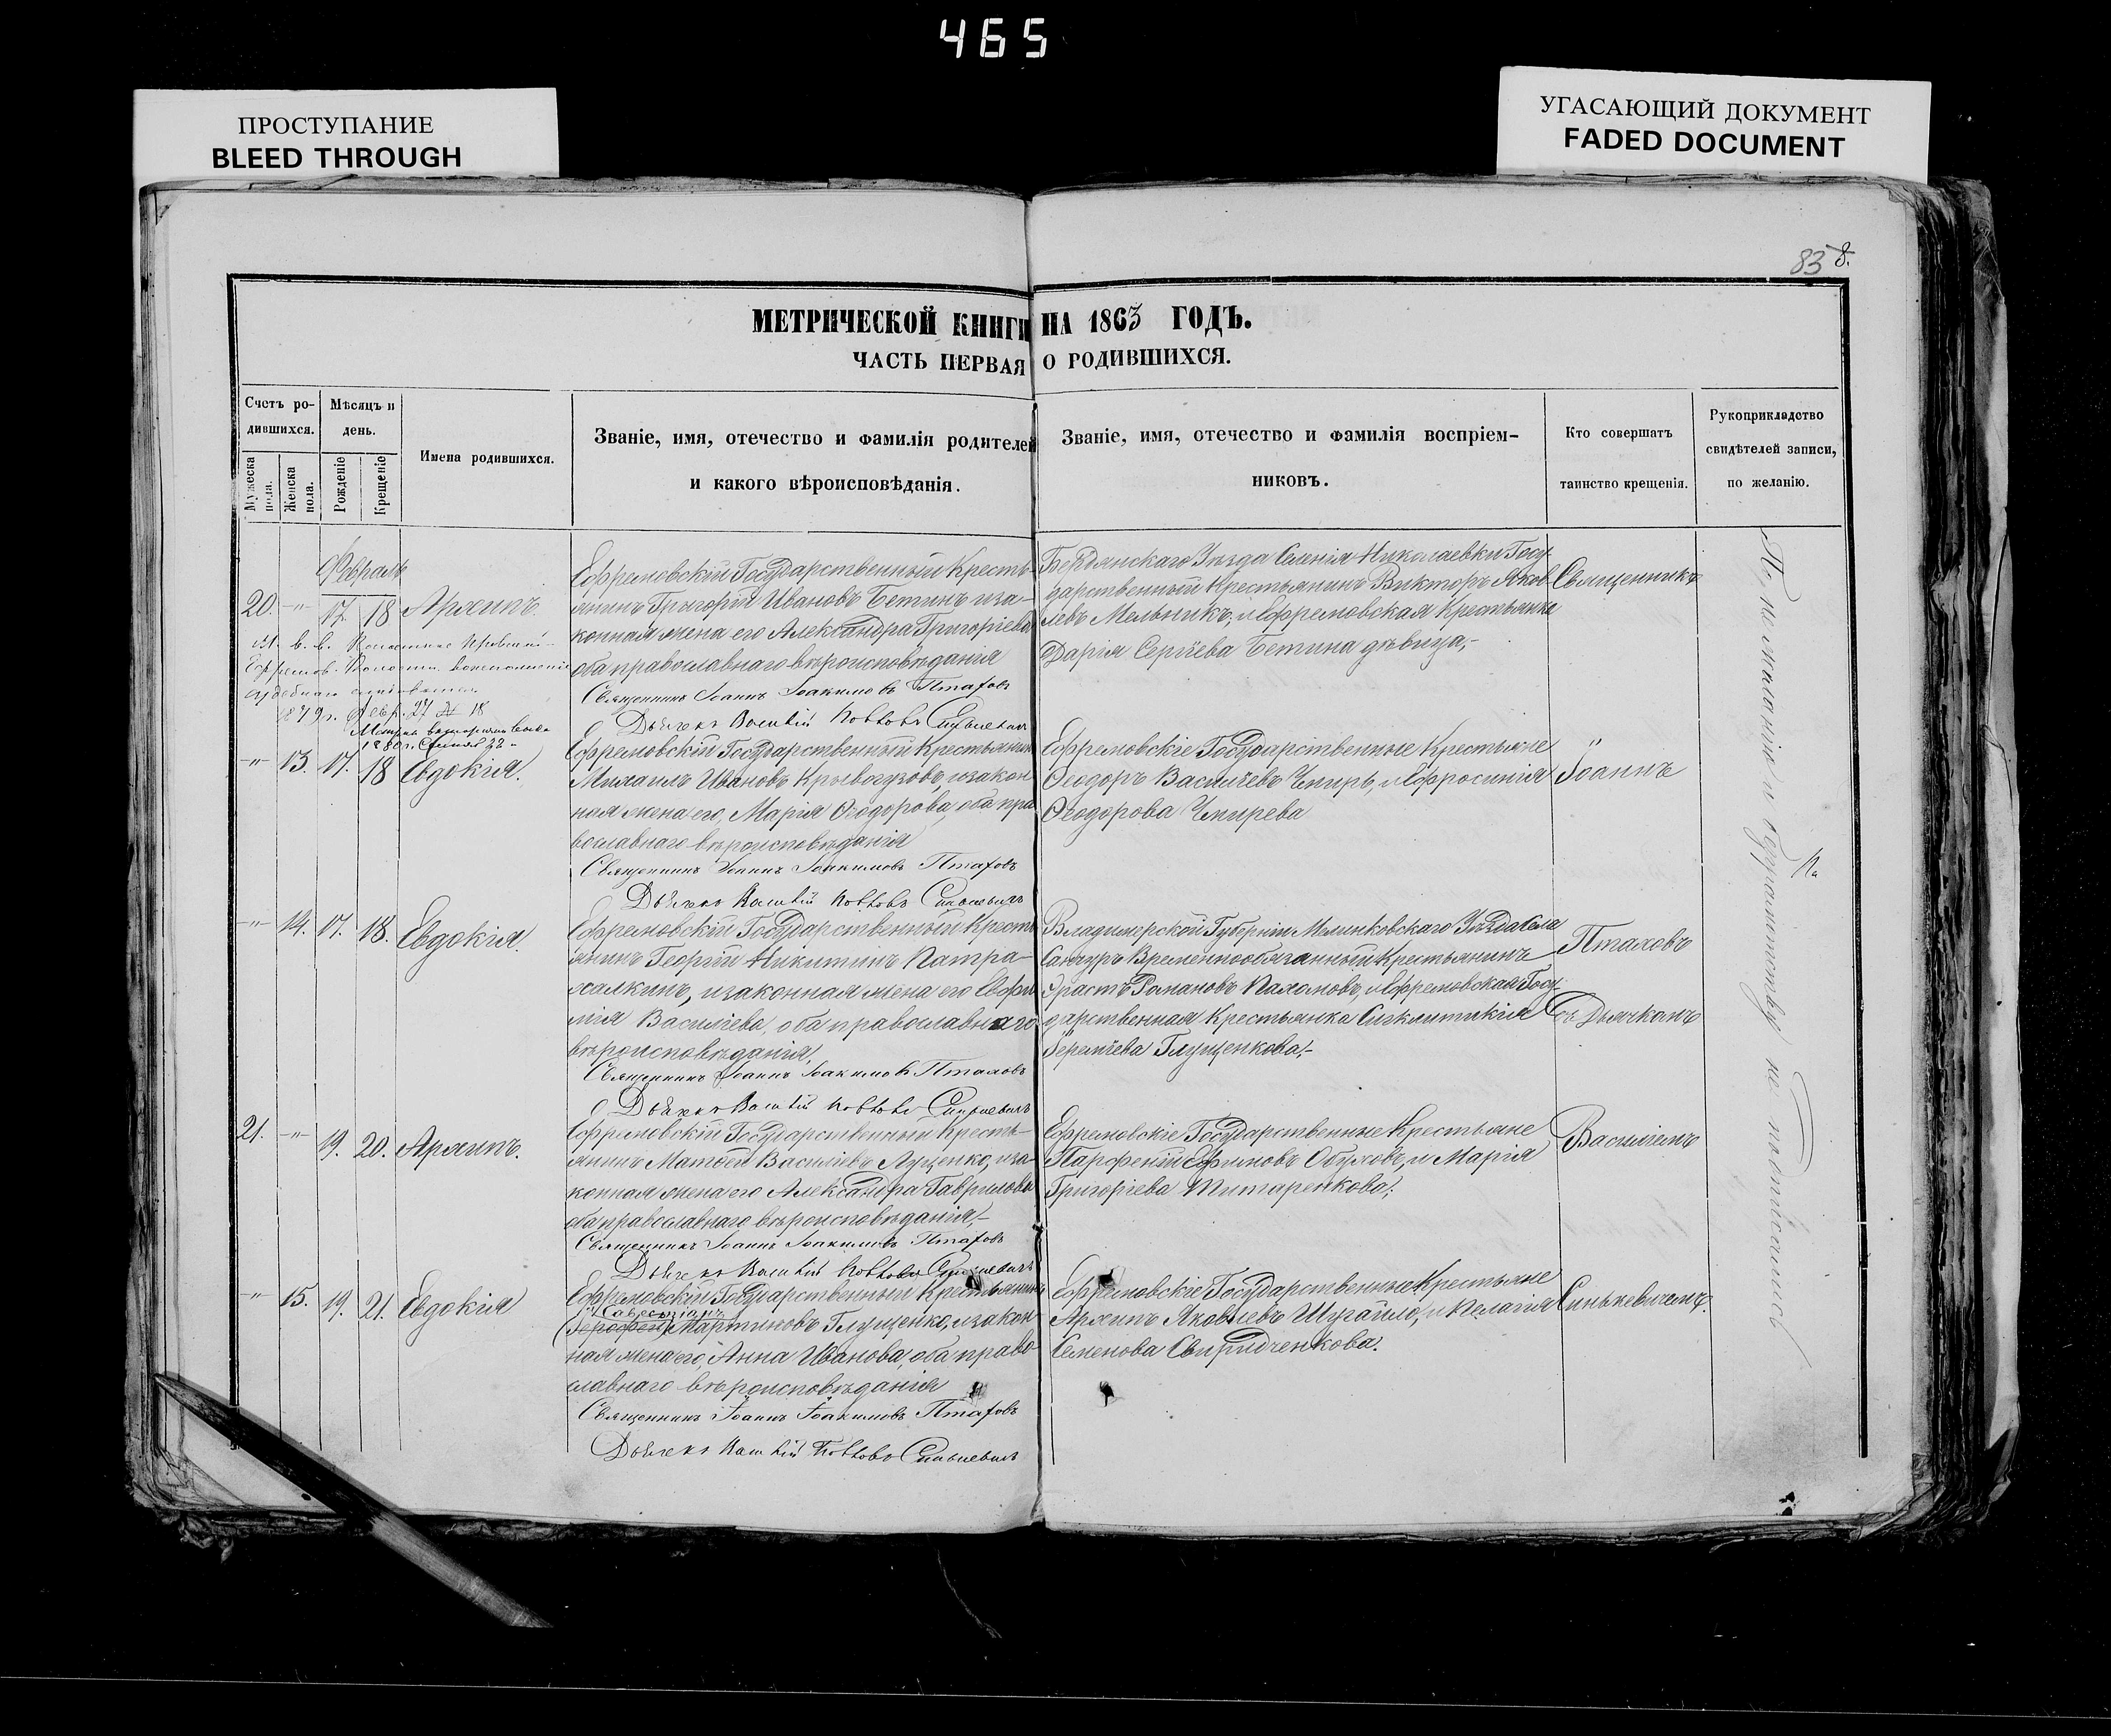 465
ПРОСТУПАНИЕ
BLEED THROUGH
УГАСАЮЩИЙ ДОКУМЕНТ
FADED DOCUMENT
83 8.
МЕТРИЧЕСКОЙ КНИГИ НА 1863 ГОДЪ.
ЧАСТЬ ПЕРВАЯ О РОДИВШИХСЯ.
Счетъ ро-
дившихся.
Мужеска
пола.
Женска
пола.
Мѣсяцъ и
день.
Рожденіе
Крещеніе
Имена родившихся.
Званіе, имя, отечество и фамилія родителей
и какого вѣроисповѣданія.
Званіе, имя, отечество и фамилія воспріем-
никовъ.
Кто совершатъ
таинство крещенія.
Рукоприкладство
свидѣтелей записи,
по желанію.
Февраль
20. -"- 17. 18 Архипъ.
1879 г. Февр. 27 № 18
Ефремовскій Государственный Кресть-
янинъ Григорій Ивановъ Бетинъ иза-
конная жена его Александра Григоріева
оба православнаго вѣроисповѣданія
Священникъ Іоаннъ Іоакимовъ Птаховъ
Дьячекъ Василій Синькевичъ
Бердянскаго Уѣзда Селенія Николаевки Госу-
дарственный Крестьянинъ Викторъ Яков-
левъ Мельникъ, и Ефремовская Крестьянка
Дарія Сергѣева Бетина дѣвица,-
Священникъ
-"- 13. 17. 18 Евдокія.
Ефремовскій Государственный Крестьянин
Михаилъ Ивановъ Кривогузовъ, и закон
ная жена его, Марія Ѳеодорова, оба пра
вославнаго вѣроисповѣданія
Священникъ Іоаннъ Іоакимовъ Птаховъ
Дьячекъ Василій Синькевичъ
Ефремовскіе Государственные Крестьяне
Ѳеодоръ Васильевъ Чмиръ, и Ефросинія
Ѳеодорова Чмирева
Іоаннъ
-"- 14. 17. 18. Евдокія.
Ефремовскій Государственный Кресть
янинъ Георгій Никитинъ Патра-
халкинъ, и законная жена его Евфи
мія Васильева, оба православнаго
вѣроисповѣданія,
Священникъ Іоаннъ Іоакимовъ Птаховъ
Дьячекъ Василій Синькевичъ
Владимерской Губерніи Меленковскаго Уѣзда Села
Санчуръ Временнообязанный Крестьянинъ
Эрастъ Романовъ Пахомовъ, и Ефремовская Госу-
дарственная Крестьянка Сигклитикія
Еремѣева Глущенкова,-
Птаховъ
Съ Дьячкомъ
21. -"- 19. 20. Архипъ.
Ефремовскій Государственный Кресть-
янинъ Матѳей Васильевъ Луценко, иза-
конная жена его Александра Гаврилова
оба православнаго вѣроисповѣданія,-
Священникъ Іоаннъ Іоакимовъ Птаховъ
Дьячекъ Василій Синькевичъ
Ефремовскіе Государственные Крестьяне
Парфеній Ефимовъ Обуховъ, и Марія
Григоріева Титаренкова,-
Василіемъ
-"- 15. 19. 21. Евдокія
Ефремовскій Государственный Крестьянинъ
Мартиновъ Глущенко, и закон
ная жена его, Анна Иванова, оба право
славнаго вѣроисповѣданія
Священникъ Іоаннъ Іоакимовъ Птаховъ
Дьячекъ Василій Синькевичъ
Ефремовскіе Государственные Крестьяне
Архипъ Яковлевъ Шурайло, и Пелагія
Семенова Свиридченкова.
Синькевичемъ.